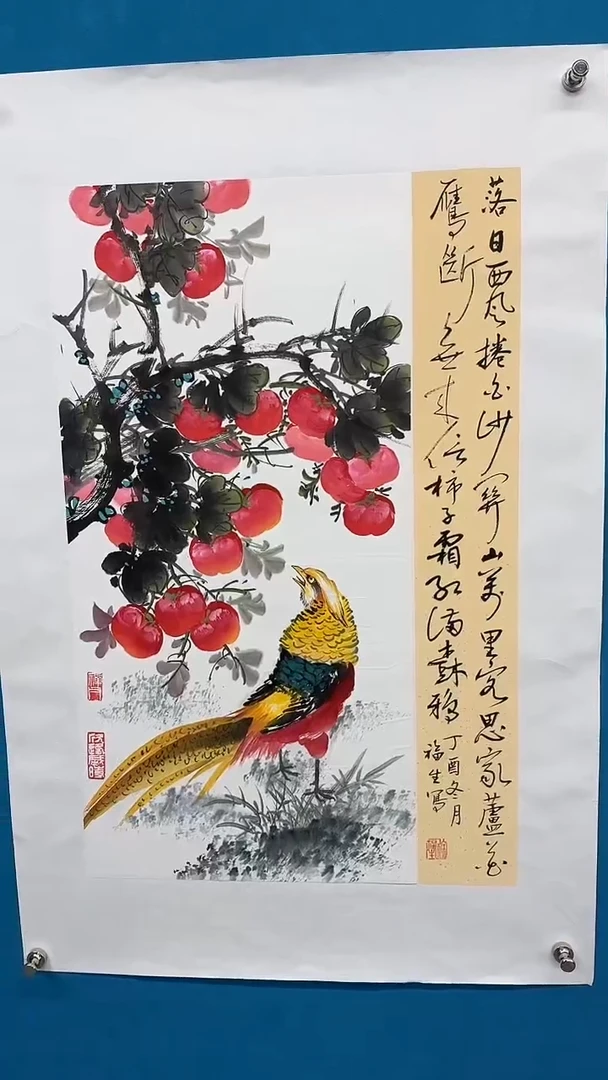 落日西风捲白沙関山萬里客思家蘆花
鴈斷無来信柿子霜红满樹鴉
丁酉冬月
福生寫